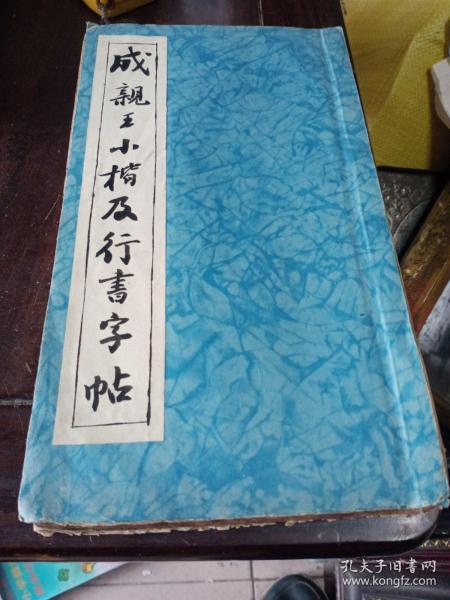 成親王小楷及行書字帖
孔夫子旧书网
www.kongfz.com